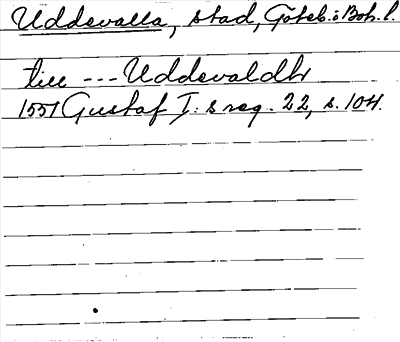 Uddevalla, stad, Göteb. o. Boh. l.
till --- Uddevaldh
1551 Gustaf I:s reg. 22, s. 104.